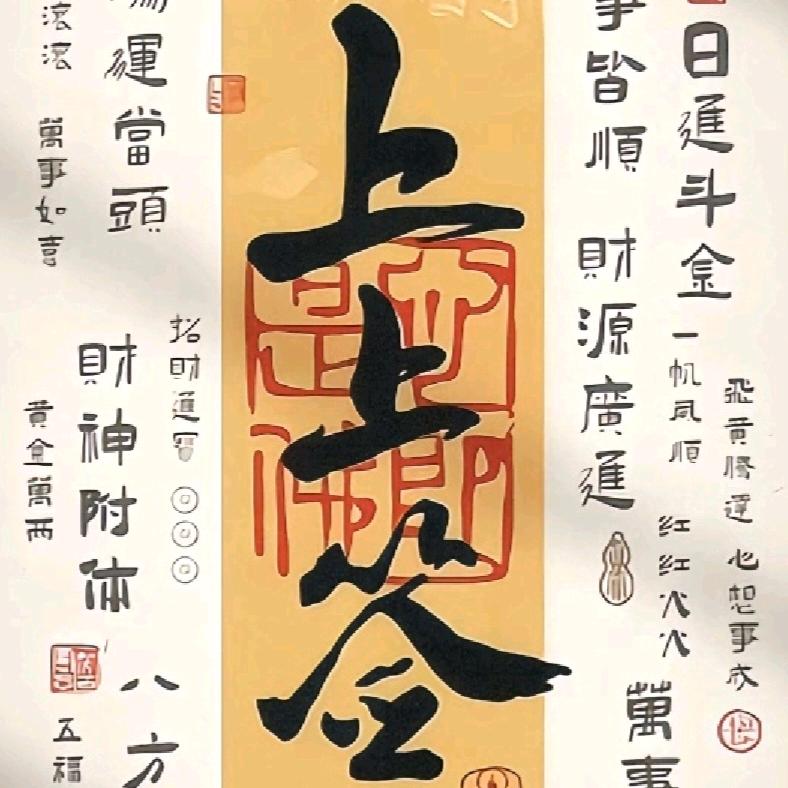 飛黄腾達
心想事成
日進斗金
一帆风順
红红火火
事皆順
財源廣進
萬事
上上签
心即是佛
運當頭
招財進寶
財神附体
八方
滚滚
萬事如吉
黄金萬两
五福